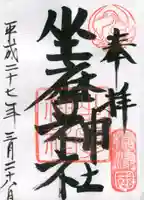 奉拝
坐摩神社
平成二十七年三月二十八日